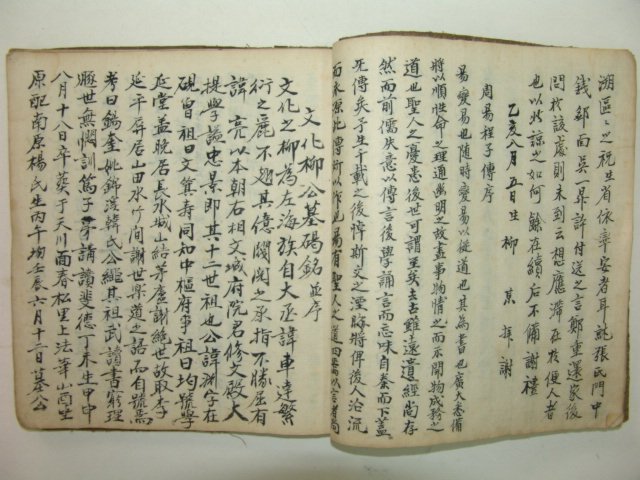 湖區之祝生省依率安者耳就張氏門中
錢邨南吳一鼎許付送之言鄭重還家後
問於該處則未到云想應滯在於便人者
也以此諒之如何餘在續后不備謝禮
乙亥八月五日生柳 拜謝
周易程子傳序
易變易也隨時變易以從道也其為書也廣大悉備
將以順性命之理通幽明之故盡事物情之而示開物成務之
道也聖人之憂患後世可謂至矣去古雖遠遺經尚存
然而前儒失意以傳言後學誦言而忘味自秦而下蓋
无傳矣予生千載之後悼斯文之湮晦將俾後人沿流
而求源此傳所以作也易有聖人之道四焉以言者尚
文化柳公墓碣銘並序
文化之柳為左海族自大丞諱車達繁
衍之麗不翅其億閥閱之承指不勝屈有
諱亮以本朝右相文城府院君修文殿大
提學諡忠景即其十二世祖也公諱淵字在
硯曾祖曰文箕壽同知中樞府事祖曰均號學
延堂蓋晚居長水城山結茅廬謝絕世故取李
延平屏居山田水竹間謝世樂道之語而自號焉
考曰鎰奎妣錦漢韓氏公繩其祖武讀書窮理
遯世無憫訓篤子學請讚斐德丁未生甲中
八月十八日卒葬于天川面春松里上法華山酉坐
原配南原楊氏生丙午均壬辰六月十二日墓公